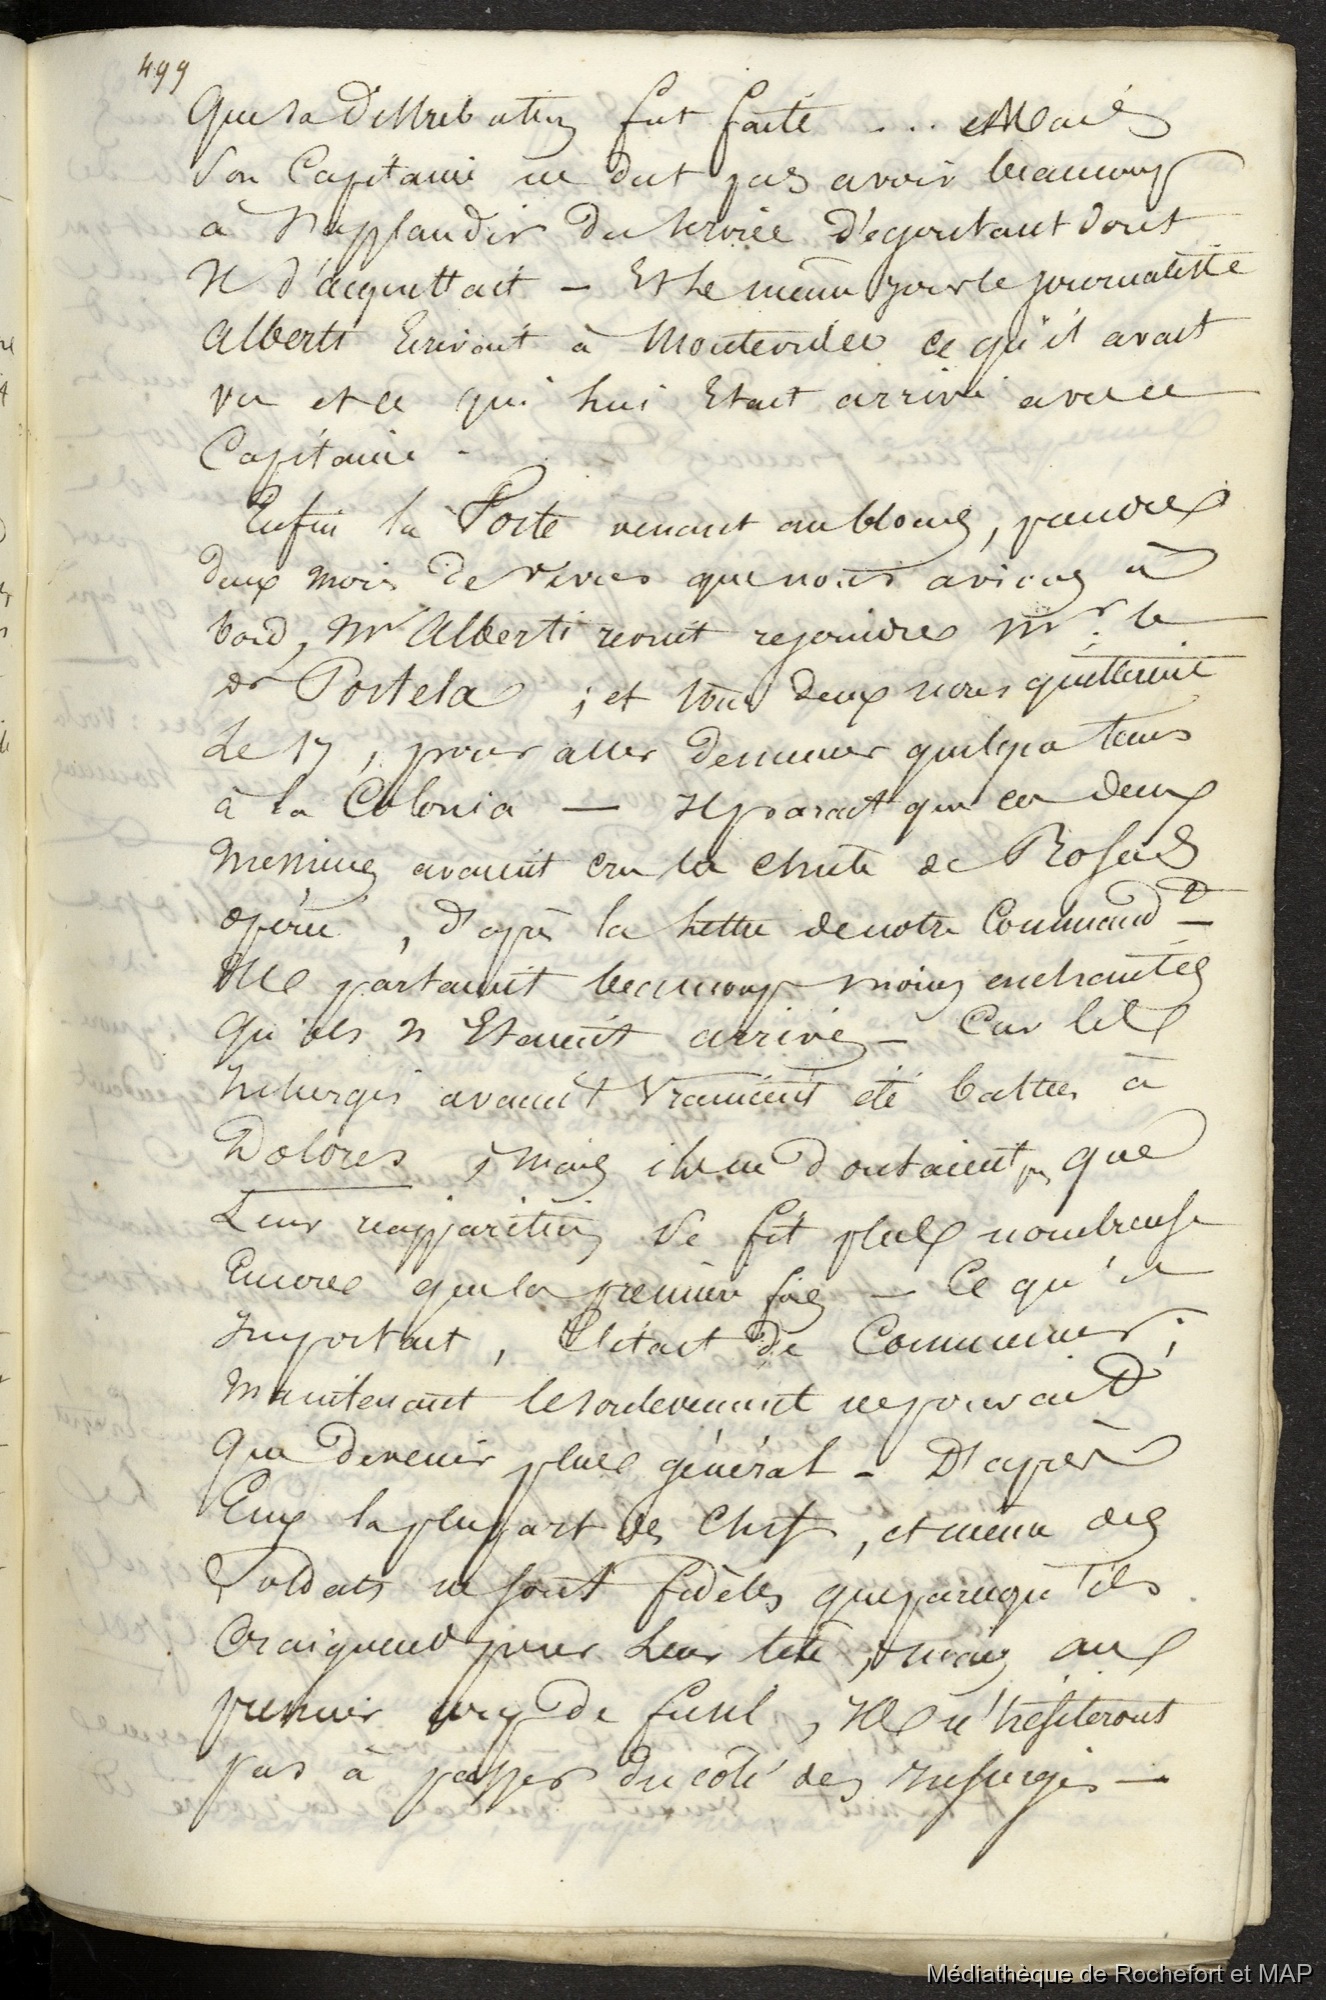 499
Que sa Distribution fut faite ... Mais
Son Capitaine ne dut pas avoir beaucoup
à S'applaudir du Service Dégoutant dont
Il S'acquittait — Et Le même jour le journaliste
Alberti Ecrivait à Montevideo ce qu'il avait
vu et ce qui Lui Etait arrivé avec ce
Capitaine -
Enfin la Forte venant au blocus, prendre
deux mois de vivres que nous avions à
bord, Mr Alberti revint rejoindre Mr. le
Dr Portela ; et tous deux nous quittèrent
Le 17, pour aller demeurer quelque tems
à la Colonia — Il parait que ces deux
Messieurs avaient cru la chute de Rosas
opérée, D'après la Lettre de notre Command.t
Ils partaient beaucoup moins enchantés
Qu'ils n'Etaient arrivés — Car les
Insurgés avaient vraiment été battus à
Dolores ; Mais ils ne doutaient pas que
Leur réapparition ne fût plus nombreuse
Encore que la première fois — Ce qu'il
Importait, C'était de Commencer ;
Maintenant le soulevement ne pouvait
Que devenir plus général — D'après
Eux la plupart des Chefs, et même des
Soldats ne sont fidèles que parcequ'ils
Craignent pour Leur tête ; mais au
premier coup de fusil, Ils n'hésiteront
pas à passer du côté des Insurgés —
Médiathèque de Rochefort et MAP